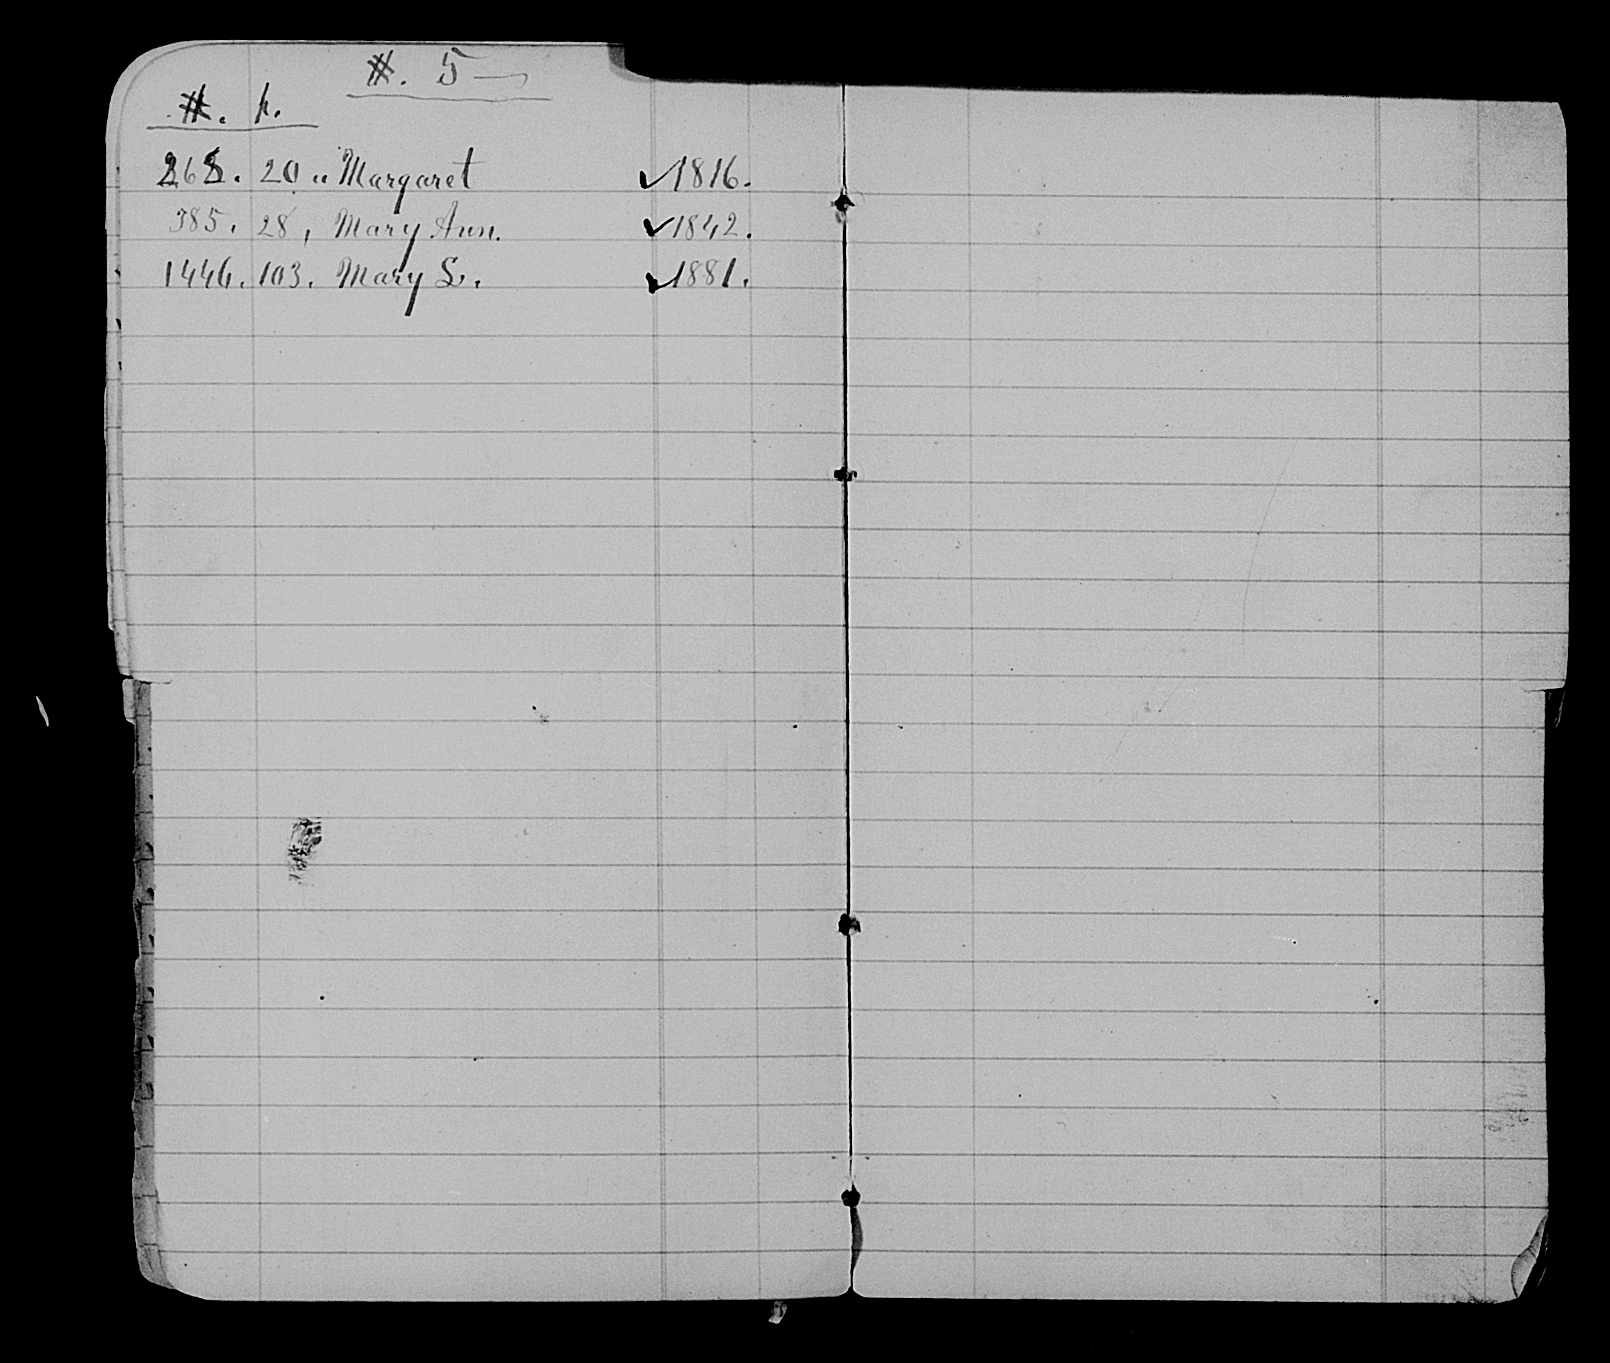 #. 5
#. p.
262. 20 " Margaret ✓1816.
385. 28, Mary Ann. ✓1842.
1446. 103. Mary L. ✓1881.